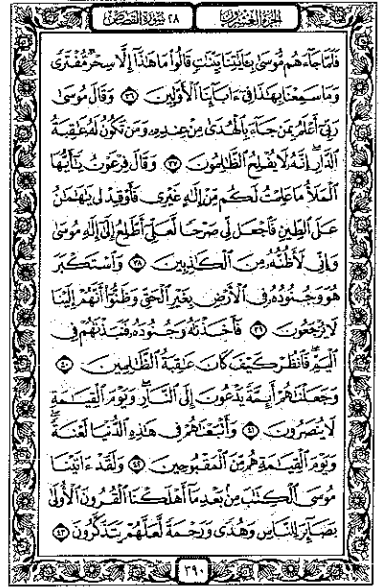 الجزء العشرون
٢٨ سورة القصص
فَلَمَّا جَآءَهُم مُّوسَىٰ بِـَٔايَٰتِنَا بَيِّنَٰتٖ قَالُواْ مَا هَٰذَآ إِلَّا سِحۡرٞ مُّفۡتَرٗى
وَمَا سَمِعۡنَا بِهَٰذَا فِيٓ ءَابَآئِنَا ٱلۡأَوَّلِينَ ٣٦ وَقَالَ مُوسَىٰ
رَبِّيٓ أَعۡلَمُ بِمَن جَآءَ بِٱلۡهُدَىٰ مِنۡ عِندِهِۦ وَمَن تَكُونُ لَهُۥ عَٰقِبَةُ
ٱلدَّارِۚ إِنَّهُۥ لَا يُفۡلِحُ ٱلظَّٰلِمُونَ ٣٧ وَقَالَ فِرۡعَوۡنُ يَٰٓأَيُّهَا
ٱلۡمَلَأُ مَا عَلِمۡتُ لَكُم مِّنۡ إِلَٰهٍ غَيۡرِي فَأَوۡقِدۡ لِي يَٰهَٰمَٰنُ
عَلَى ٱلطِّينِ فَٱجۡعَل لِّي صَرۡحٗا لَّعَلِّيٓ أَطَّلِعُ إِلَىٰٓ إِلَٰهِ مُوسَىٰ
وَإِنِّي لَأَظُنُّهُۥ مِنَ ٱلۡكَٰذِبِينَ ٣٨ وَٱسۡتَكۡبَرَ
هُوَ وَجُنُودُهُۥ فِي ٱلۡأَرۡضِ بِغَيۡرِ ٱلۡحَقِّ وَظَنُّوٓاْ أَنَّهُمۡ إِلَيۡنَا
لَا يُرۡجَعُونَ ٣٩ فَأَخَذۡنَٰهُ وَجُنُودَهُۥ فَنَبَذۡنَٰهُمۡ فِي
ٱلۡيَمِّۖ فَٱنظُرۡ كَيۡفَ كَانَ عَٰقِبَةُ ٱلظَّٰلِمِينَ ٤٠
وَجَعَلۡنَٰهُمۡ أَئِمَّةٗ يَدۡعُونَ إِلَى ٱلنَّارِۖ وَيَوۡمَ ٱلۡقِيَٰمَةِ
لَا يُنصَرُونَ ٤١ وَأَتۡبَعۡنَٰهُمۡ فِي هَٰذِهِ ٱلدُّنۡيَا لَعۡنَةٗۖ
وَيَوۡمَ ٱلۡقِيَٰمَةِ هُم مِّنَ ٱلۡمَقۡبُوحِينَ ٤٢ وَلَقَدۡ ءَاتَيۡنَا
مُوسَى ٱلۡكِتَٰبَ مِنۢ بَعۡدِ مَآ أَهۡلَكۡنَا ٱلۡقُرُونَ ٱلۡأُولَىٰ
بَصَآئِرَ لِلنَّاسِ وَهُدٗى وَرَحۡمَةٗ لَّعَلَّهُمۡ يَتَذَكَّرُونَ ٤٣
٣٩٠